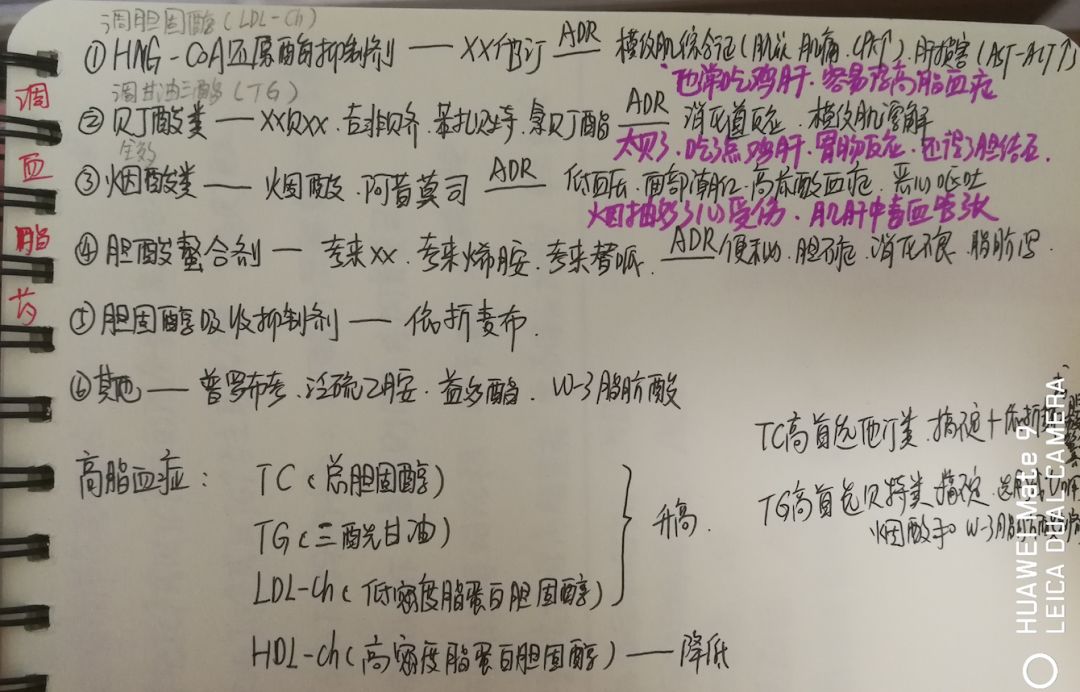 调血脂药
调胆固醇(LDL-Ch)
① HMG-CoA还原酶抑制剂 — XX他汀 ADR 横纹肌综合征(肌炎.肌痛.CPK↑).肝损害(AST-ALT↑)
他常吃鸡肝.容易得高脂血症
调甘油三酯(TG)
② 贝丁酸类 — XX贝XX.吉非贝齐.苯扎贝特.氯贝丁酯 ADR 消化道反应.横纹肌溶解
太贝了.吃了点鸡肝.胃肠反应.还误了胆结石.
全效
③ 烟酸类 — 烟酸.阿昔莫司 ADR 低血压.面部潮红.高尿酸血症.恶心呕吐
烟抽多了心受伤.肌肝中毒血管张
④ 胆酸螯合剂 — 考来XX.考来烯胺.考来替呱. ADR 便秘.胆石症.消化不良.脂肪泻.
⑤ 胆固醇吸收抑制剂 — 依折麦布.
⑥ 其他 — 普罗布考.泛硫乙胺.益多酯.W-3脂肪酸
TC高首选他汀类.搞不定+依折
高脂血症: TC(总胆固醇)
TG高首选贝特类.搞不定.选用
TG(三酰甘油) 升高.
烟酸和W-3脂肪酸
LDL-Ch(低密度脂蛋白胆固醇)
HDL-Ch(高密度脂蛋白胆固醇) — 降低
HUAWEI Mate 9
LEICA DUAL CAMERA